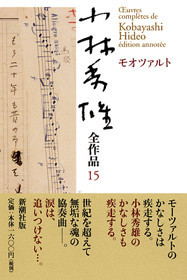 Œuvres complètes de
Kobayashi
Hideo
édition annotée
モオツァルト
小林秀雄
全作品
15
モーツァルトの
かなしさは
疾走する。
小林秀雄の
かなしさも
疾走する。
世紀を超えて
無垢な魂の
協奏曲―。
涙は、
追いつけない…。
新潮社版